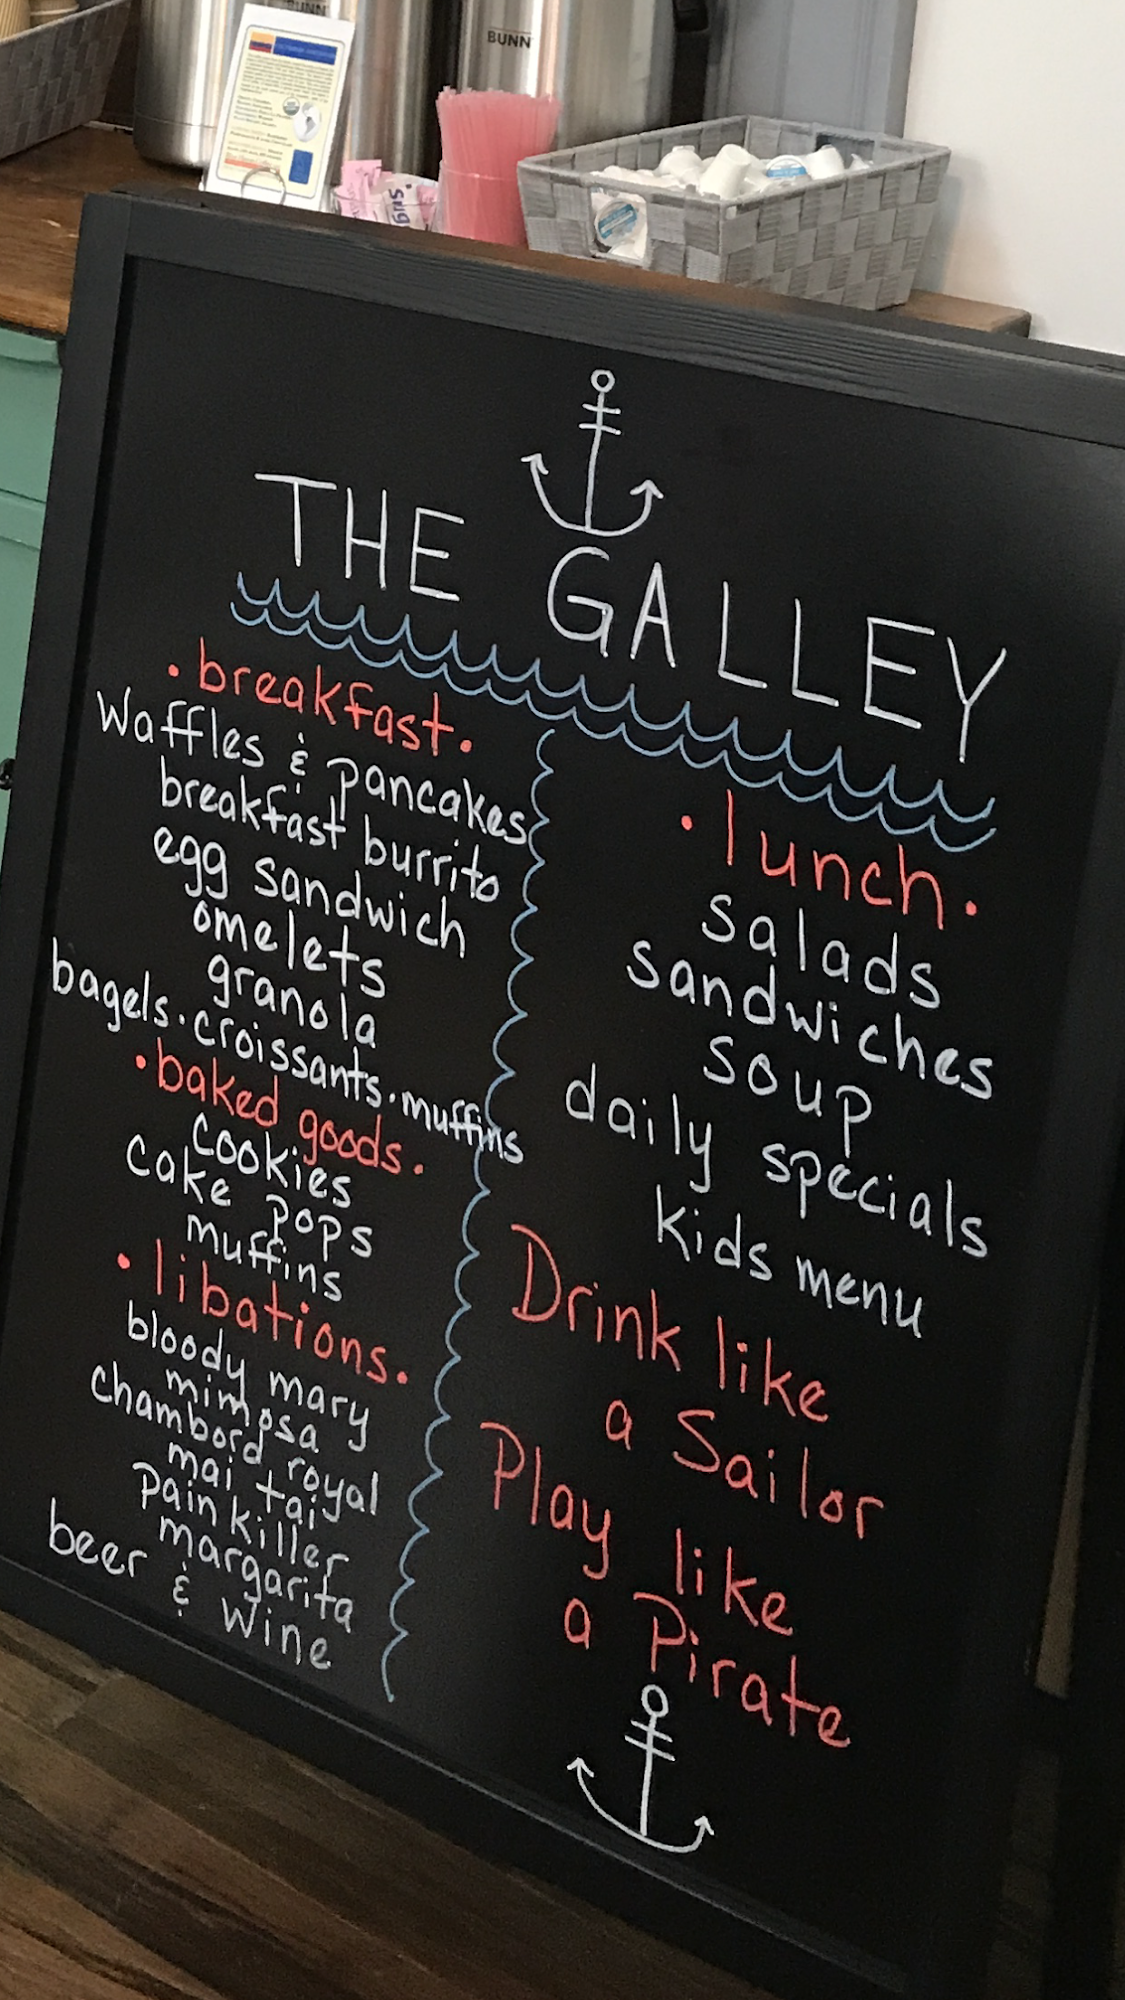 BUNN
BUNN
Sug
THE GALLEY
· breakfast ·
Waffles & pancakes
breakfast burrito
egg sandwich
omelets
granola
bagels · croissants · muffins
· baked goods ·
cookies
cake pops
muffins
· libations ·
bloody mary
mimosa
chambord royal
mai tai
Painkiller
margarita
beer & wine
· lunch ·
salads
sandwiches
soup
daily specials
kids menu
Drink like
a Sailor
Play like
a Pirate